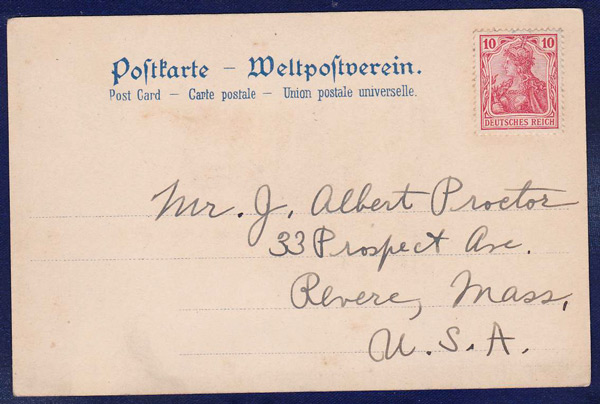 Postkarte – Weltpostverein.
Post Card – Carte postale – Union postale universelle.
10 10
DEUTSCHES REICH
Mr. J. Albert Proctor
33 Prospect Ave.
Revere, Mass,
U. S. A.